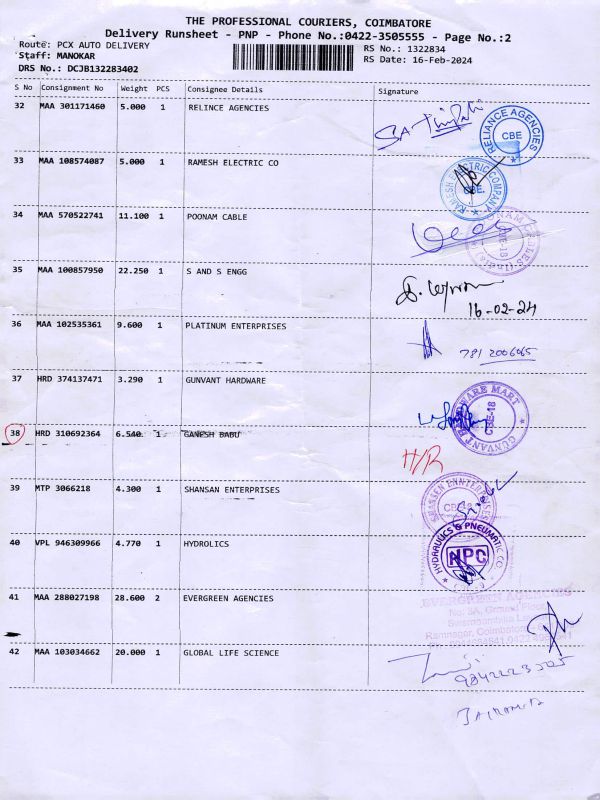 THE PROFESSIONAL COURIERS, COIMBATORE
Delivery Runsheet - PNP - Phone No.:0422-3505555 - Page No.:2
Route: PCX AUTO DELIVERY
RS No.: 1322834
Staff: MANOKAR
RS Date: 16-Feb-2024
DRS No.: DCJB132283402
S No Consignment No Weight PCS Consignee Details Signature
32 MAA 301171460 5.000 1 RELINCE AGENCIES
RELIANCE AGENCIES
CBE
33 MAA 108574087 5.000 1 RAMESH ELECTRIC CO
RAMESH ELECTRIC COMPANY
CBE.
34 MAA 570522741 11.100 1 POONAM CABLE
35 MAA 100857950 22.250 1 S AND S ENGG
16-02-24
36 MAA 102535361 9.600 1 PLATINUM ENTERPRISES
781 2006065
37 HRD 374137471 3.290 1 GUNVANT HARDWARE
GUNVANT HARDWARE MART
CBE-18
38 HRD 310692364 6.540 1 GANESH BABU
H/R
39 MTP 3066218 4.300 1 SHANSAN ENTERPRISES
40 VPL 946309966 4.770 1 HYDROLICS
HYDRAULICS & PNEUMATIC CO
HPC
41 MAA 288027198 28.600 2 EVERGREEN AGENCIES
EVERGREEN AGENCIES
No. 3A, Ground Floor
Ramnagar, Coimbatore
42 MAA 103034662 20.000 1 GLOBAL LIFE SCIENCE